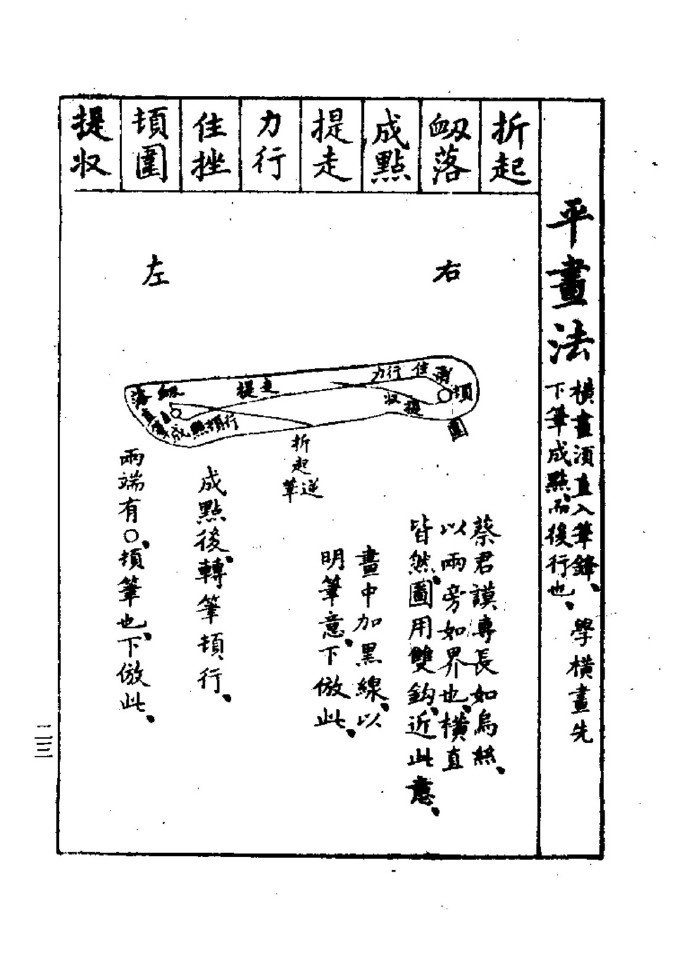 平畫法
橫畫須直入筆鋒、
下筆成點、而後行也、
學橫畫先
折起
衂落
成點
提走
力行
住挫
頓圍
提收
右
左
衂落
成點頓行
提走
力行
住
頓
圍
提收
折起
逆筆
蔡君謨專長如烏絲、
以兩旁如界也、橫直
皆然、圖用雙鈎、近此意、
畫中加黑線、以
明筆意、下倣此、
成點後、轉筆頓行、
兩端有○、頓筆也、下倣此、
二三